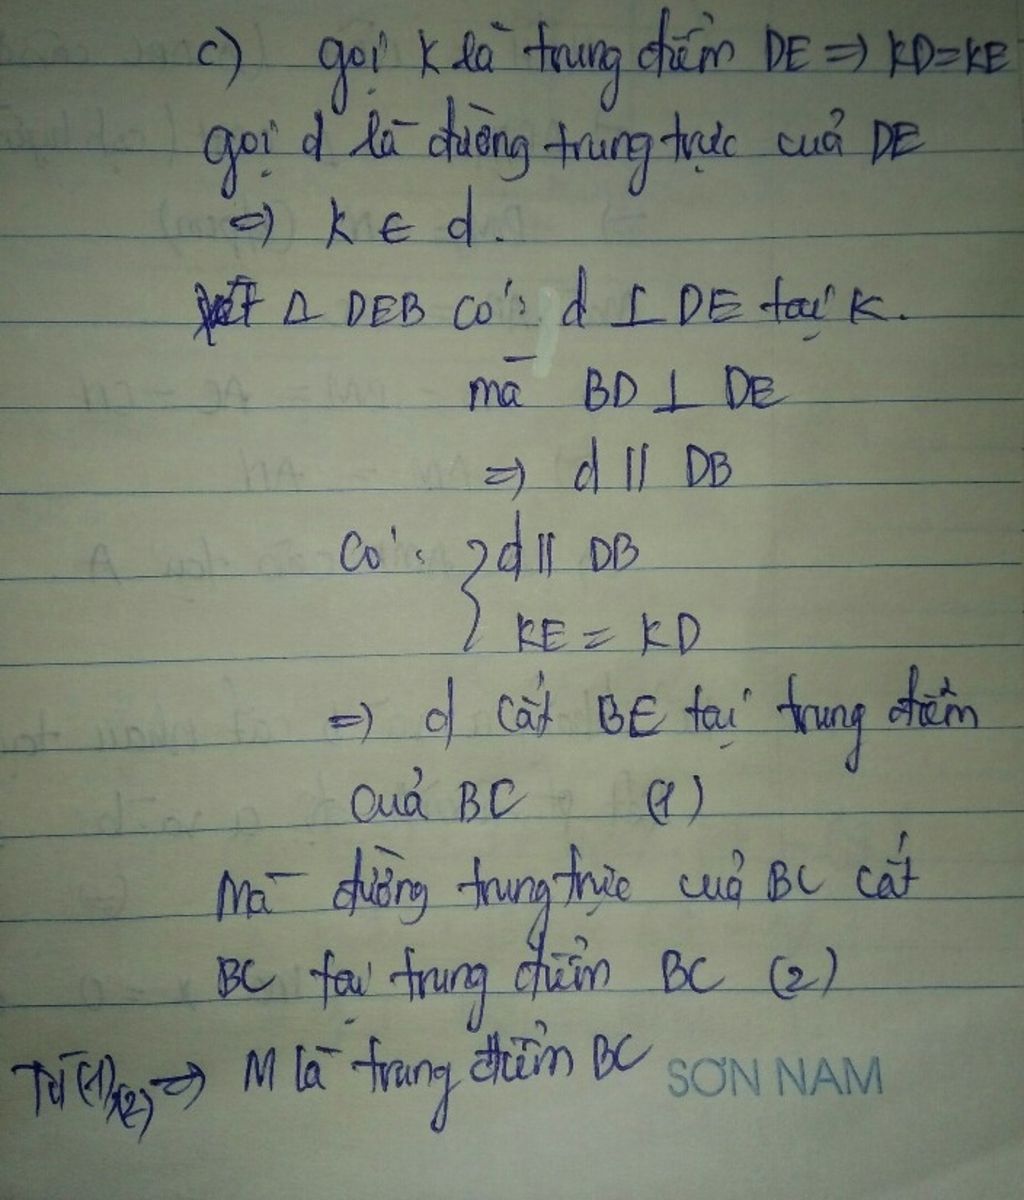 c) gọi K là trung điểm DE => KD=KE
gọi d là đường trung trực của DE
=> K ∈ d.
Xét Δ DEB có: d ⊥ DE tại K.
mà BD ⊥ DE
=> d // DB
Có: } d // DB
KE = KD
=> d cắt BE tại trung điểm
của BC (1)
Mà đường trung trực của BC cắt
BC tại trung điểm BC (2)
Từ (1),(2) => M là trung điểm BC
SƠN NAM